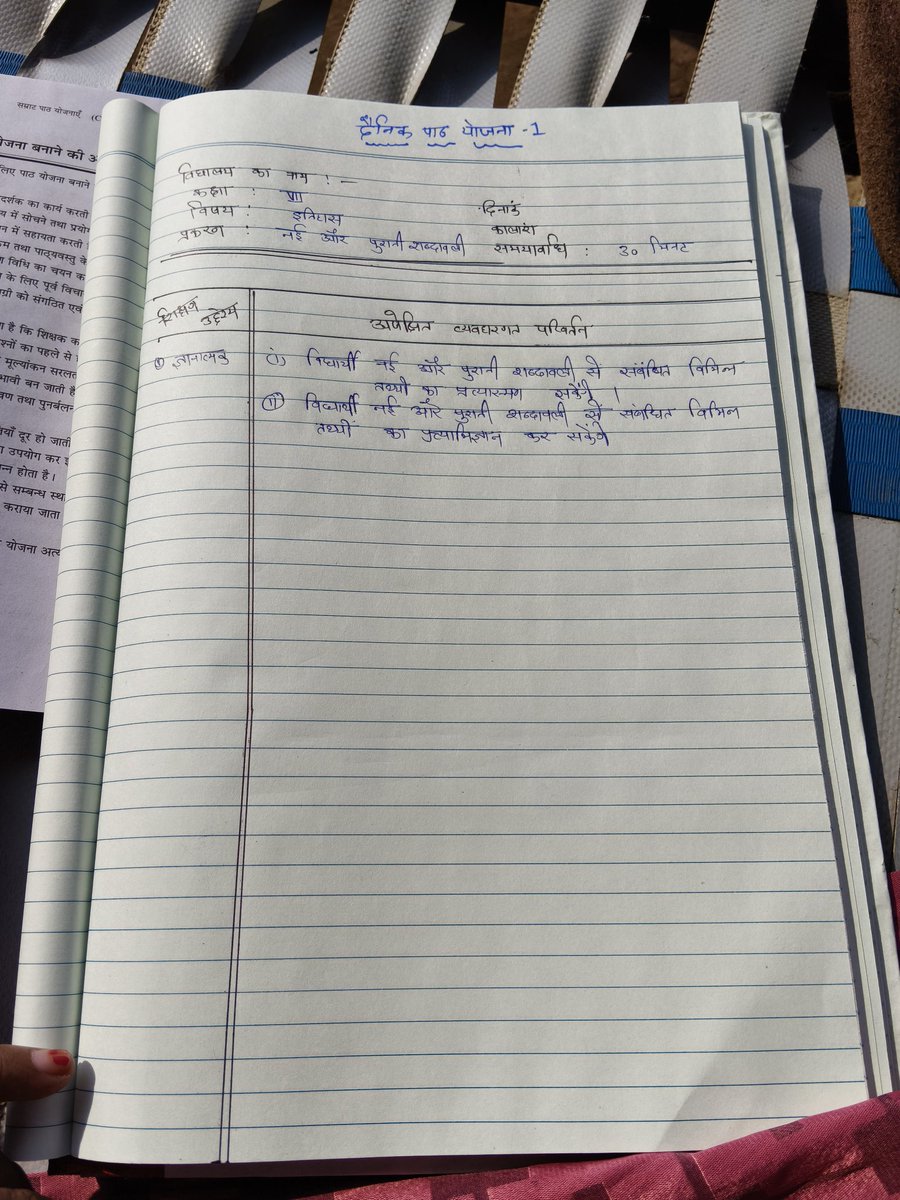 सम्राट पाठ योजनाएँ (C
ोजना बनाने की अ
लिए पाठ योजना बनाने
दर्शक का कार्य करती
य में सोचने तथा प्रयो
न में सहायता करती
म तथा पाठ्यवस्तु के
ा विधि का चयन क
के लिए पूर्व विचा
ग्री को संगठित एवं
ा है कि शिक्षक क
श्नों का पहले से
मूल्यांकन सरलत
भावी बन जाती है
वण तथा पुनर्बलन
याँ दूर हो जाती
ा उपयोग कर इ
न्न होता है।
से सम्बन्ध स्था
कराया जाता
योजना अत्य
दैनिक पाठ योजना -1
विद्यालय का नाम : —
कक्षा : VII दिनांक
विषय : इतिहास कालांश
प्रकरण : नई और पुरानी शब्दावली समयावधि : 30 मिनट
शिक्षण उद्देश्य अपेक्षित व्यवहारगत परिवर्तन
ज्ञानात्मक (i) विद्यार्थी नई और पुरानी शब्दावली से संबंधित विभिन
तथ्यों का प्रत्यास्मरण सकेंगे।
(ii) विद्यार्थी नई और पुरानी शब्दावली से संबंधित विभिन
तथ्यों का प्रत्याभिज्ञान कर सकेंगे